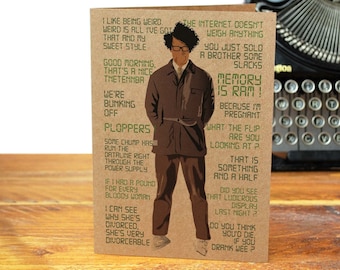 I LIKE BEING WEIRD
WEIRD IS ALL I'VE GOT
THAT AND MY
SWEET STYLE
GOOD MORNING
THAT'S A NICE
TNETENNBA
WE'RE
BUNKING
OFF
PLOPPERS
SOME CHUMP HAS
RUN THE
DATALINE RIGHT
THROUGH THE
POWER SUPPLY
IF I HAD A POUND
FOR EVERY
BLOODY WOMAN
I CAN SEE
WHY SHE'S
DIVORCED,
SHE'S VERY
DIVORCEABLE
THE INTERNET DOESN'T
WEIGH ANYTHING
YOU JUST SOLD
A BROTHER SOME
SLACKS
MEMORY
IS RAM !
BECAUSE I'M
PREGNANT
WHAT THE FLIP
ARE YOU
LOOKING AT ?
THAT IS
SOMETHING
AND A HALF
DID YOU SEE
THAT LUDICROUS
DISPLAY
LAST NIGHT ?
DO YOU THINK
YOU'D DIE
IF YOU
DRANK WEE ?